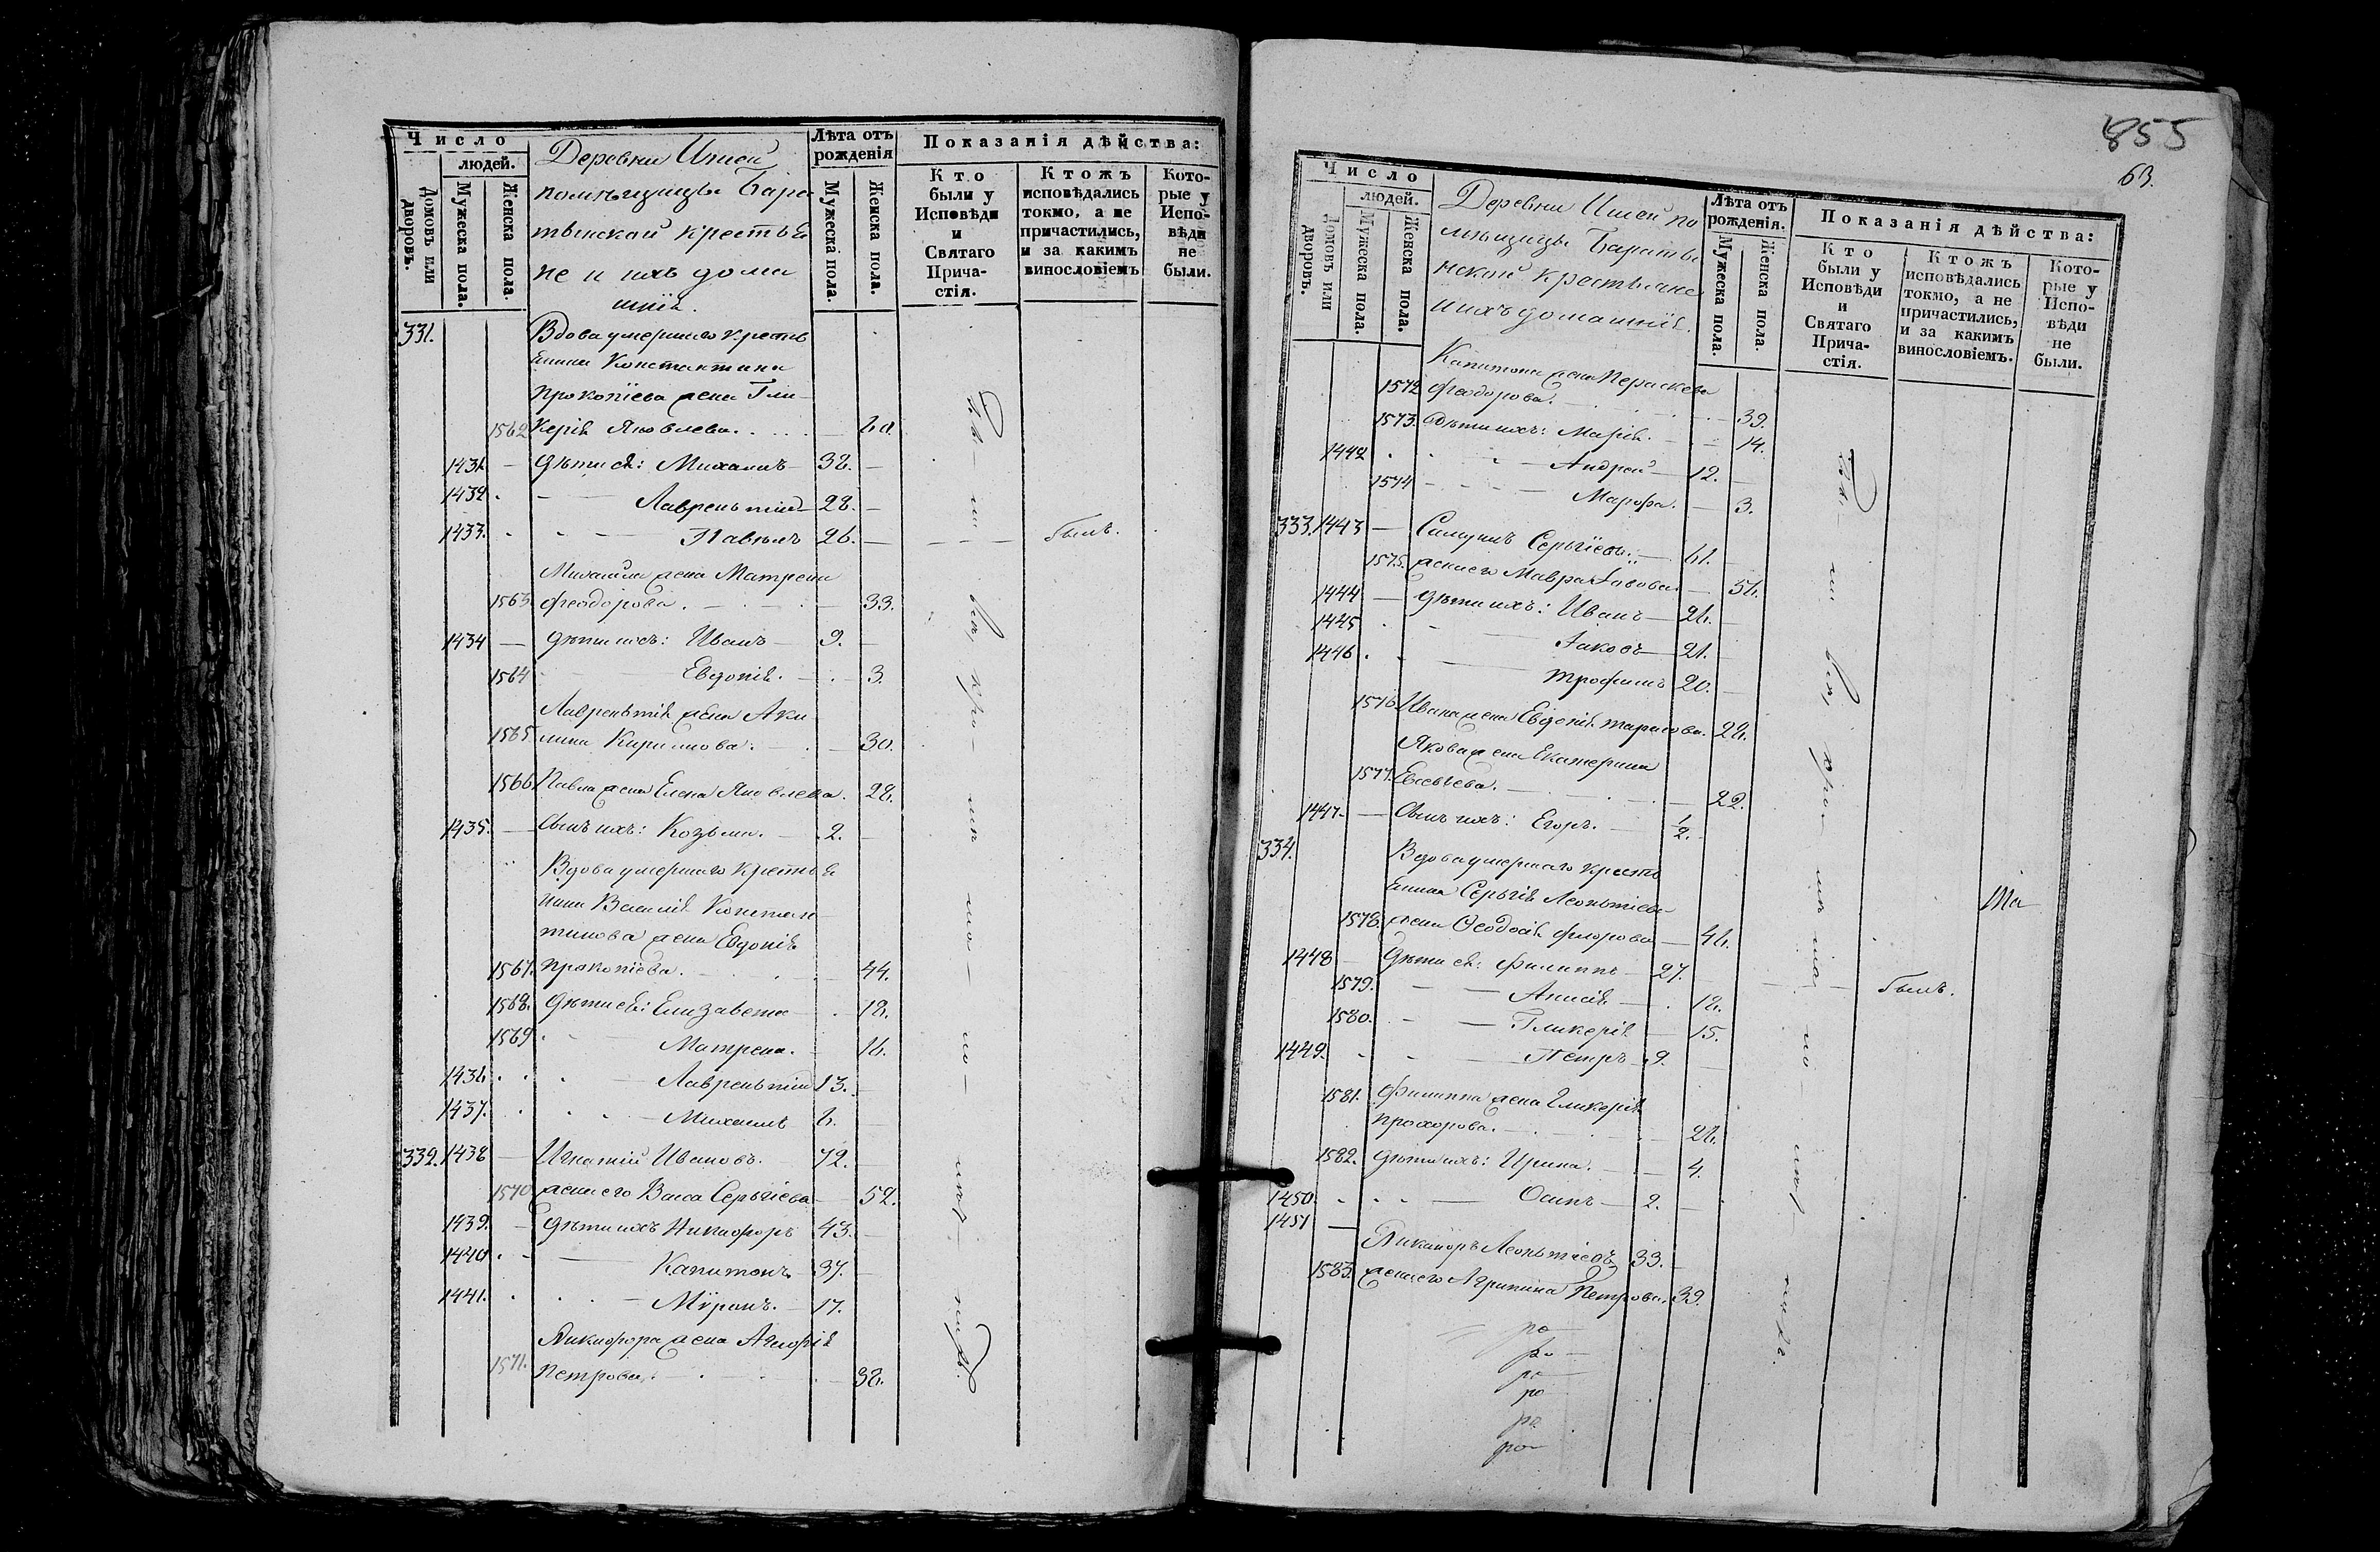 Число
людей.
Домовъ или дворовъ.
Мужеска пола.
Женска пола.
Деревни Ишеи
помѣщицы Бара
тынской крестья
не и ихъ дома
шнія.
Лѣта отъ рожденія
Мужеска пола.
Женска пола.
Показанія дѣйства:
Кто были у Исповѣди и Святаго Причастія.
Ктожъ исповѣдались токмо, а не причастились, и за какимъ винословіемъ
Которые у Исповѣди не были.
331.
Вдова умершаго кресть
янина Константина
Прокопіева жена Гли-
1562 керія Яковлева. 60.
1431. дѣти ея: Михаилъ 38.
1432. Лаврентій 28.
1433. Павелъ 26. былъ.
Михаила жена Матрена
1563. Феодорова. 33.
1434 дѣти ихъ: Иванъ 9.
1564 Евдокія. 3.
Лаврентія жена Аку
1565. лина Кирилова. 30.
1566. Павла жена Елена Яковлева. 28.
1435. сынъ ихъ: Козьма. 2.
Вдова умершаго крестья
нина Василія Констан
тинова жена Евдокія
1567. Прокопіева. 44.
1568. дѣти ея: Елизавета 18.
1569 Матрена. 16.
1436. Лаврентій 13.
1437. Михаилъ 6.
332. 1438 Игнатій Ивановъ. 72.
1570. жена его Васа Сергіева 52.
1439. дѣти ихъ Никифоръ 43.
1440 Капитонъ 37.
1441. Мѵронъ. 17.
Никифора жена
1571. Петрова. 38.
855
63.
Число
людей.
Домовъ или дворовъ.
Мужеска пола.
Женска пола.
Деревни Ишеи по
мѣщицы Параты
нской крестьяне
и ихъ домашнія.
Лѣта отъ рожденія.
Мужеска пола.
Женска пола.
Показанія дѣйства:
Кто были у Исповѣди и Святаго Причастія.
Ктожъ исповѣдались токмо, а не причастились, и за какимъ винословіемъ.
Которые у Исповѣди не были.
Капитона жена Параскева
1572 Феодорова. 39.
1573. дѣти ихъ: Марія. 14.
1442 Андрей 12.
1574 Марфа. 3.
333. 1443 Самуилъ Сергіевъ. 61.
1575. жена его Мавра 56.
1444 дѣти ихъ: Иванъ 26.
1445 Іаковъ 21.
1446 Трофимъ 20.
1576. Ивана жена Евдокія Тарасова. 28.
Якова жена Екатерина
1577. Евсевьева. 22.
1447. сынъ ихъ: Егоръ. 1/2.
334.
Вдова умершаго кресть
янина Сергія Леонтіева
1578. жена Ѳеодосія Флорова 46.
1448 дѣти ея: Филиппъ 27. былъ.
1579. Анисія 18.
1580. Гликерія 15.
1449. Петръ 9.
1581. Филиппа жена Гликерія
Прохорова. 26.
1582. дѣти ихъ: Ирина. 4.
1450. Осипъ 2.
1451
Никаноръ Леонтіевъ 33.
1583. жена его Агрипина Петрова. 39.
ро
ро
ро
ро
ро
ро